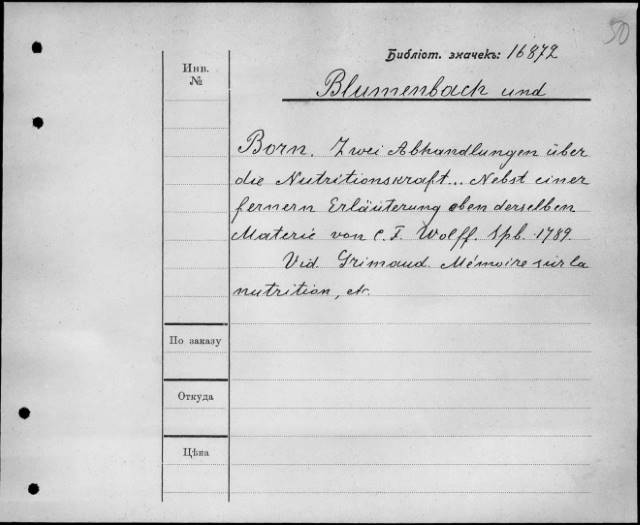 50
Библіот. значекъ: 16872
Инв.
№
Blumenbach und
Born. Zwei Abhandlungen über
die Nutritionskraft... Nebst einer
fernern Erläuterung eben derselben
Materie von C. F. Wolff. Spb. 1789.
Vid. Grimaud. Mémoire sur la
nutrition, etc.
По заказу
Откуда
Цѣна